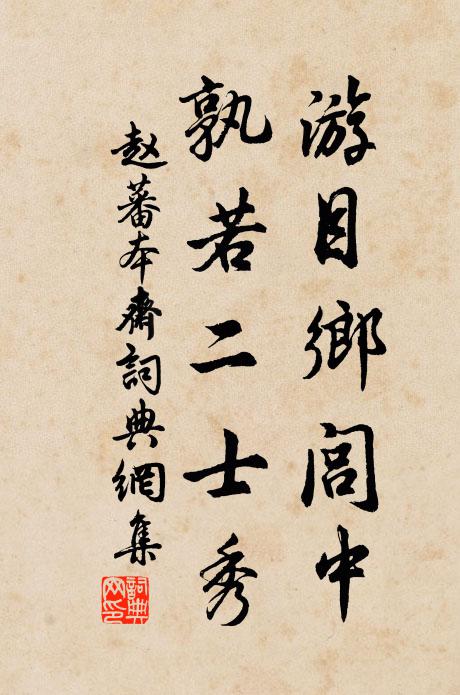 游目鄉閭中
孰若二士秀
赵蕃本齋詞典網集
詞典
网印